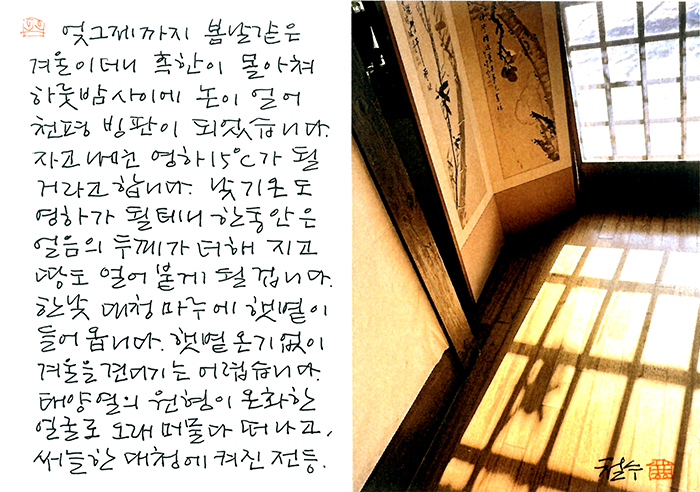 엊그제까지 봄날같은
겨울이더니 혹한이 몰아쳐
하룻밤사이에 논이 얼어
천평 빙판이 되었습니다.
자고나면 영하15℃가 될
거라고 합니다. 낮기온도
영하가 될테니 한동안은
얼음의 두께가 더해 지고
땅도 얼어 붙게 될 겁니다.
한낮 대청 마루에 햇볕이
들어 옵니다. 햇볕 온기없이
겨울을 견디기는 어렵습니다.
태양열의 원형이 온화한
얼굴로 오래 머물다 떠나고,
써늘한 대청에 켜진 전등.
철수